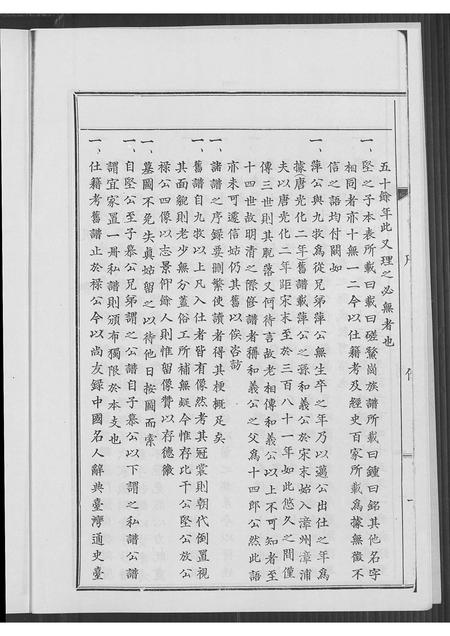 五十餘年此又理之必無者也
一、堅之子本表所載曰載曰磋鰲尚族譜所載曰鍾曰銘其他名字
相同者亦十無一二今以仕籍考及經史百家所載為據無徵不
信之語均付闕如
一、萍公與九牧為從兄弟萍公無生卒之年乃以邁公出仕之年為
據唐光化二年舊譜載萍公之孫和義公於宋末始入漳州漳浦
夫以唐光化二年距宋末至於三百八十一年如此悠久之間僅
傳三世則其脫落又何待言故老相傳和義公以上不可知者至
十四世故明清之際修譜者稱和義公之父為十四郎公然此語
亦未可遽信姑仍其舊以俟咨訪
一、諸譜之序錄要刪繁使讀者得其梗概足矣
一、舊譜自九牧以上凡入仕者皆有像然考其冠裳則朝代倒置視
其面貌則老少無分蓋俗工所補無疑今惟存比干公堅公放公
祿公四像以志景仰餘人則惟留像贊以存德徽
一、墓圖不免失真姑留之以待他日按圖而索
一、自堅公至子慕公兄弟謂之公譜自子慕公以下謂之私譜公譜
謂宜家置一冊私譜則頒布獨限於本支也
一、仕籍考舊譜止於祿公今以尚友錄中國名人辭典臺灣通史臺